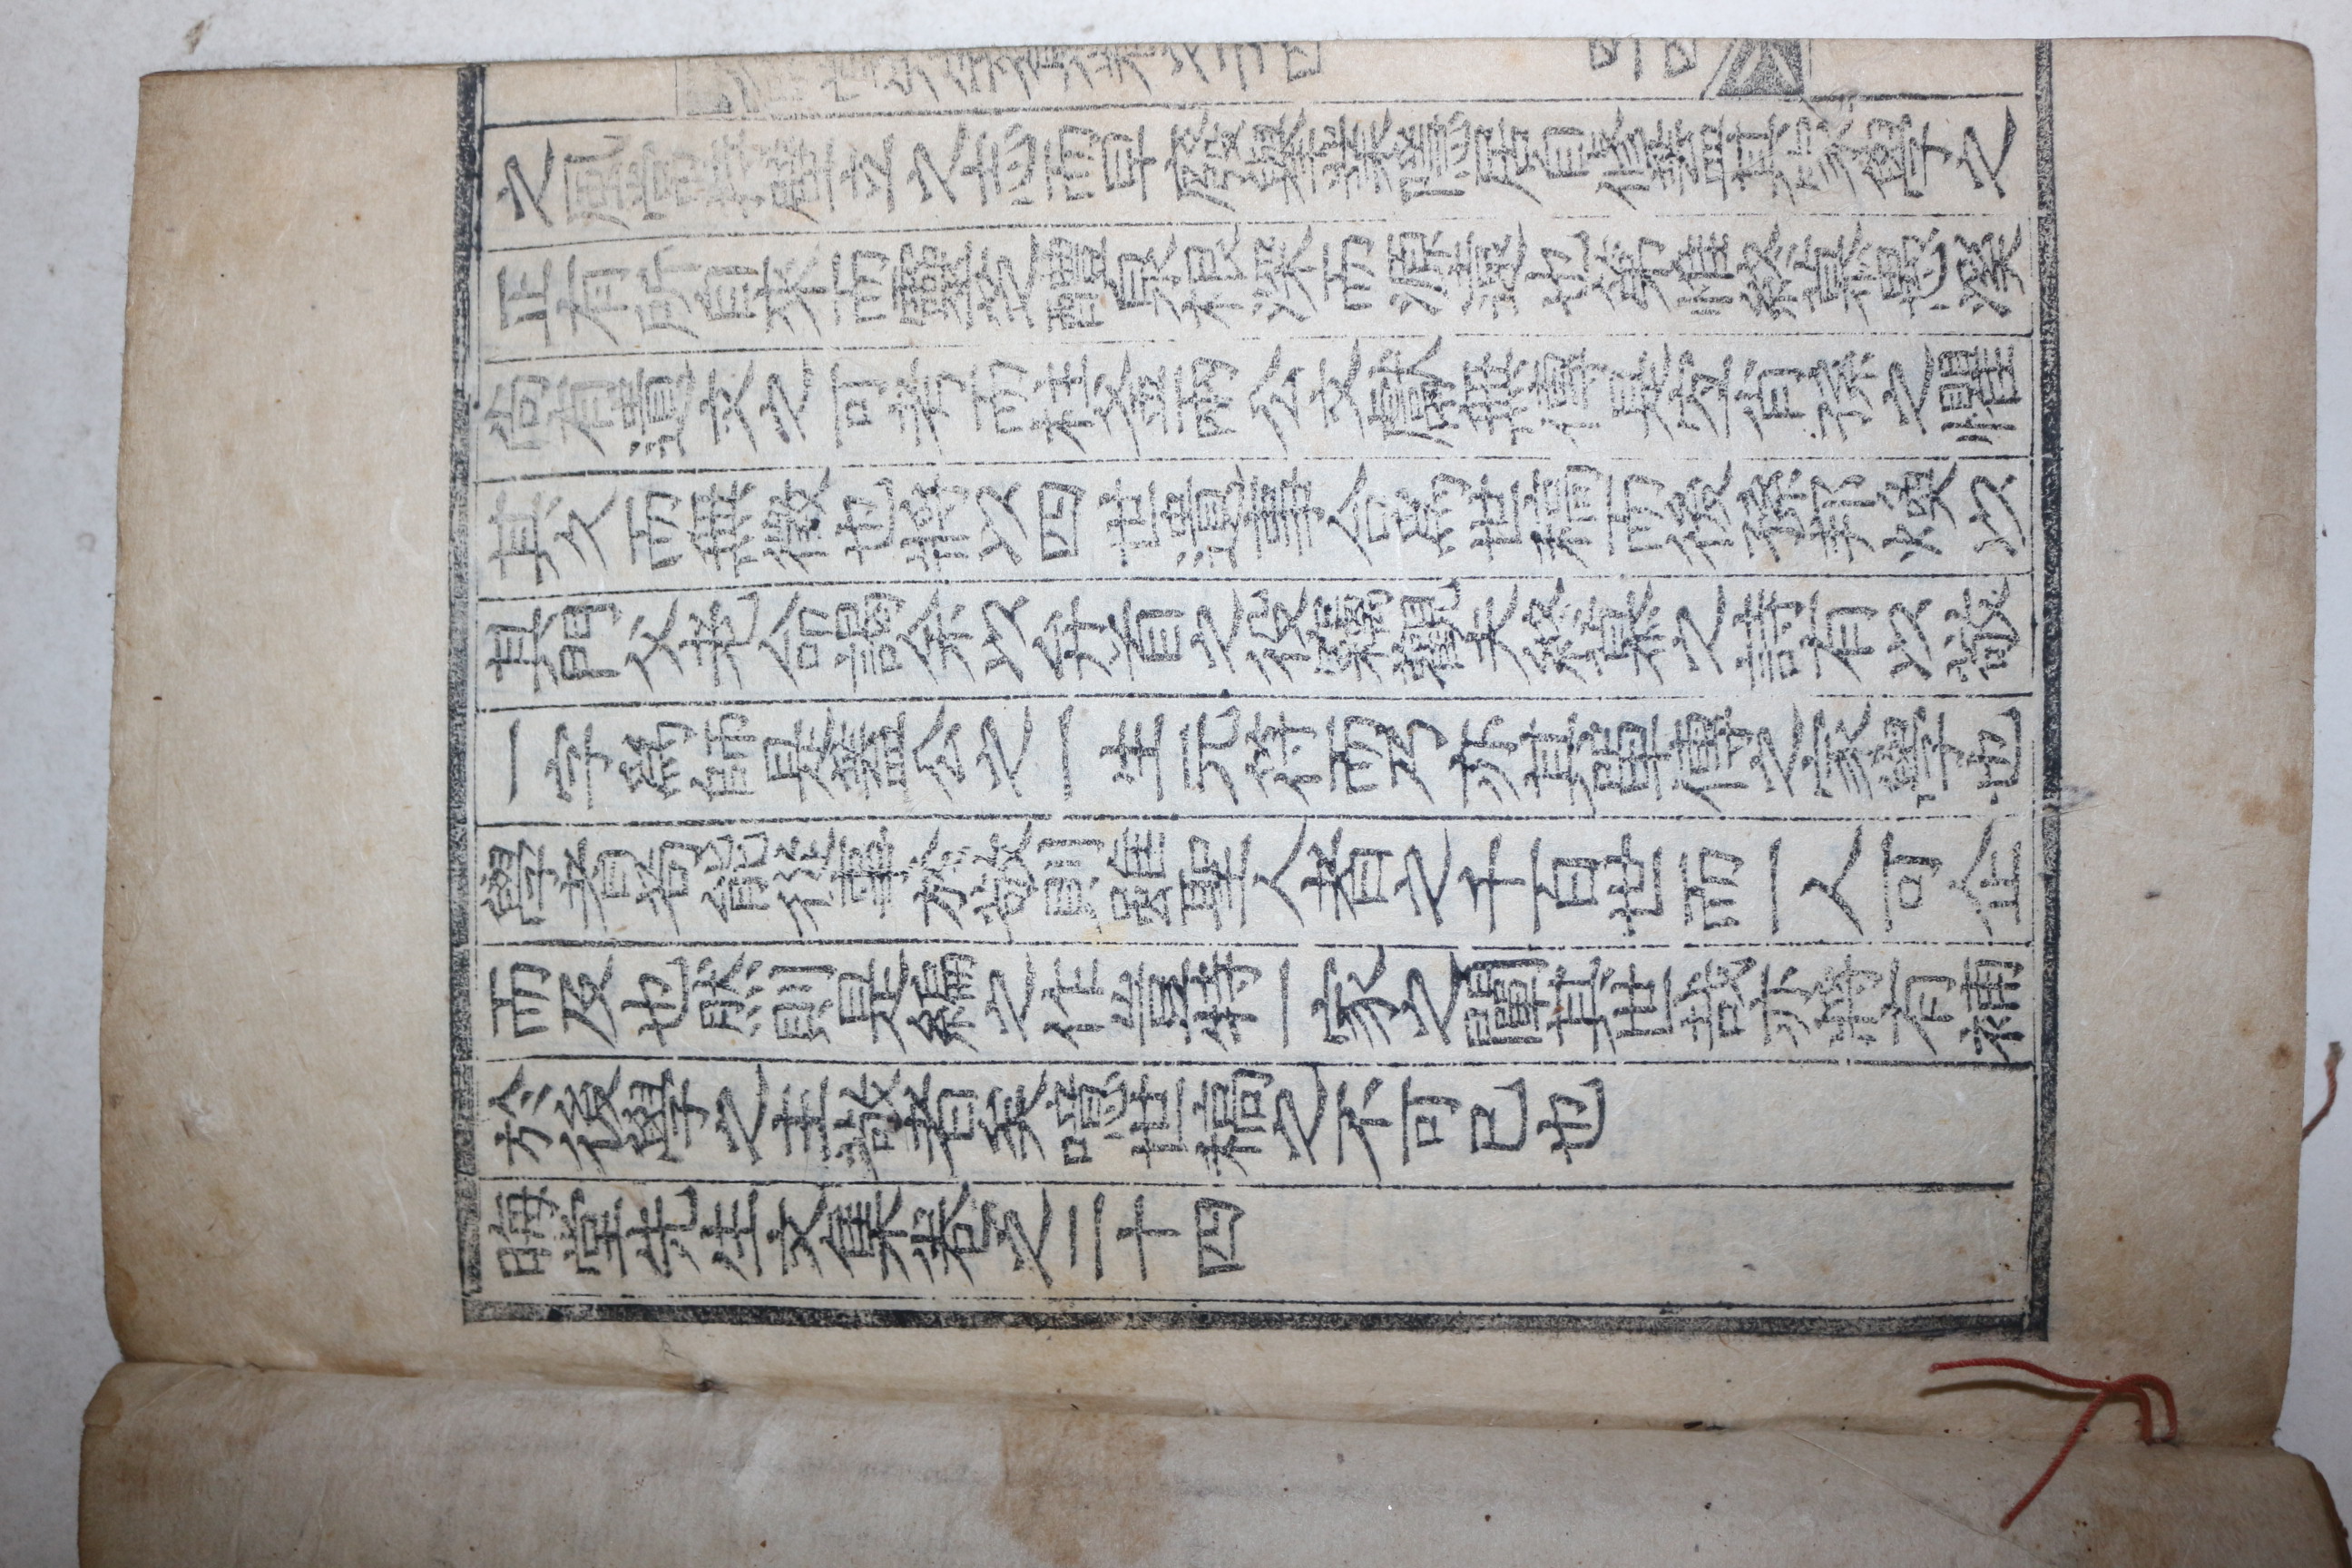 之風常持壁立之志而早廢擧業隱居自修蓋其家學之
正有所自來而靈芝醴泉根深而源遠也第惟終慕愚溪
尙有遺文之可考而桂釜兩公文獻無傳是宜肖孫之懼
其久而無徵也將以四世遺事合爲世稿而後孫邦煥以
其門父老命謁余以弁首之役竊觀夫終慕之詩有以敬
一字爲師是蓋公之一生元符而乃亦其單傳之家學也
學者苟能從事於敬則雖聖人者之千百世而一人可企
而及也然則是編之作豈特一家之闡其世哉亦將有補
於後學之主敬者矣噫世稿之不可已也
晦堂先生文集卷之二十四